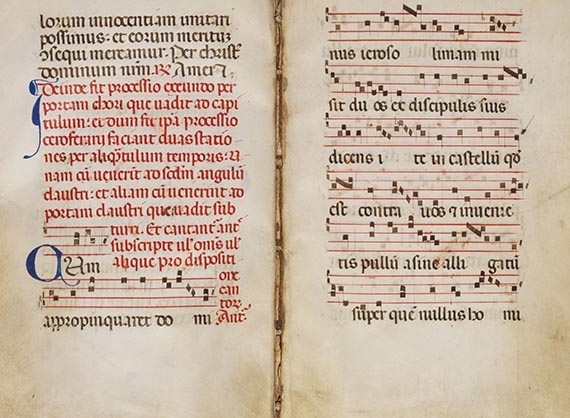 lorum innocentiam imitari
possimus: et eorum meritis
consequi mereamur. Per christum
dominum nrm. R. Amen.
Deinde fit processio exeundo per
portam chori que uadit ad capi
tulum: et dum fit ipa processio
ceroferarij faciant duas statio
nes, per aliqntulum temporis: u
nam cu uenerit ad sedm angulu
claustri: et aliam cu uenerint ad
portam claustri que uadit sub
turri. Et cantant ant
subscripte ul omnis ul
Cum alique pro dispositi
oie
can
tor.
appropinquaret do mi Ant.
nus ieroso limam mi
sit du os ex discipulis suis
dicens i te in castellu qd
est contra uos et inuenie
tis pullu asine alli gatu
super que nullus ho mi